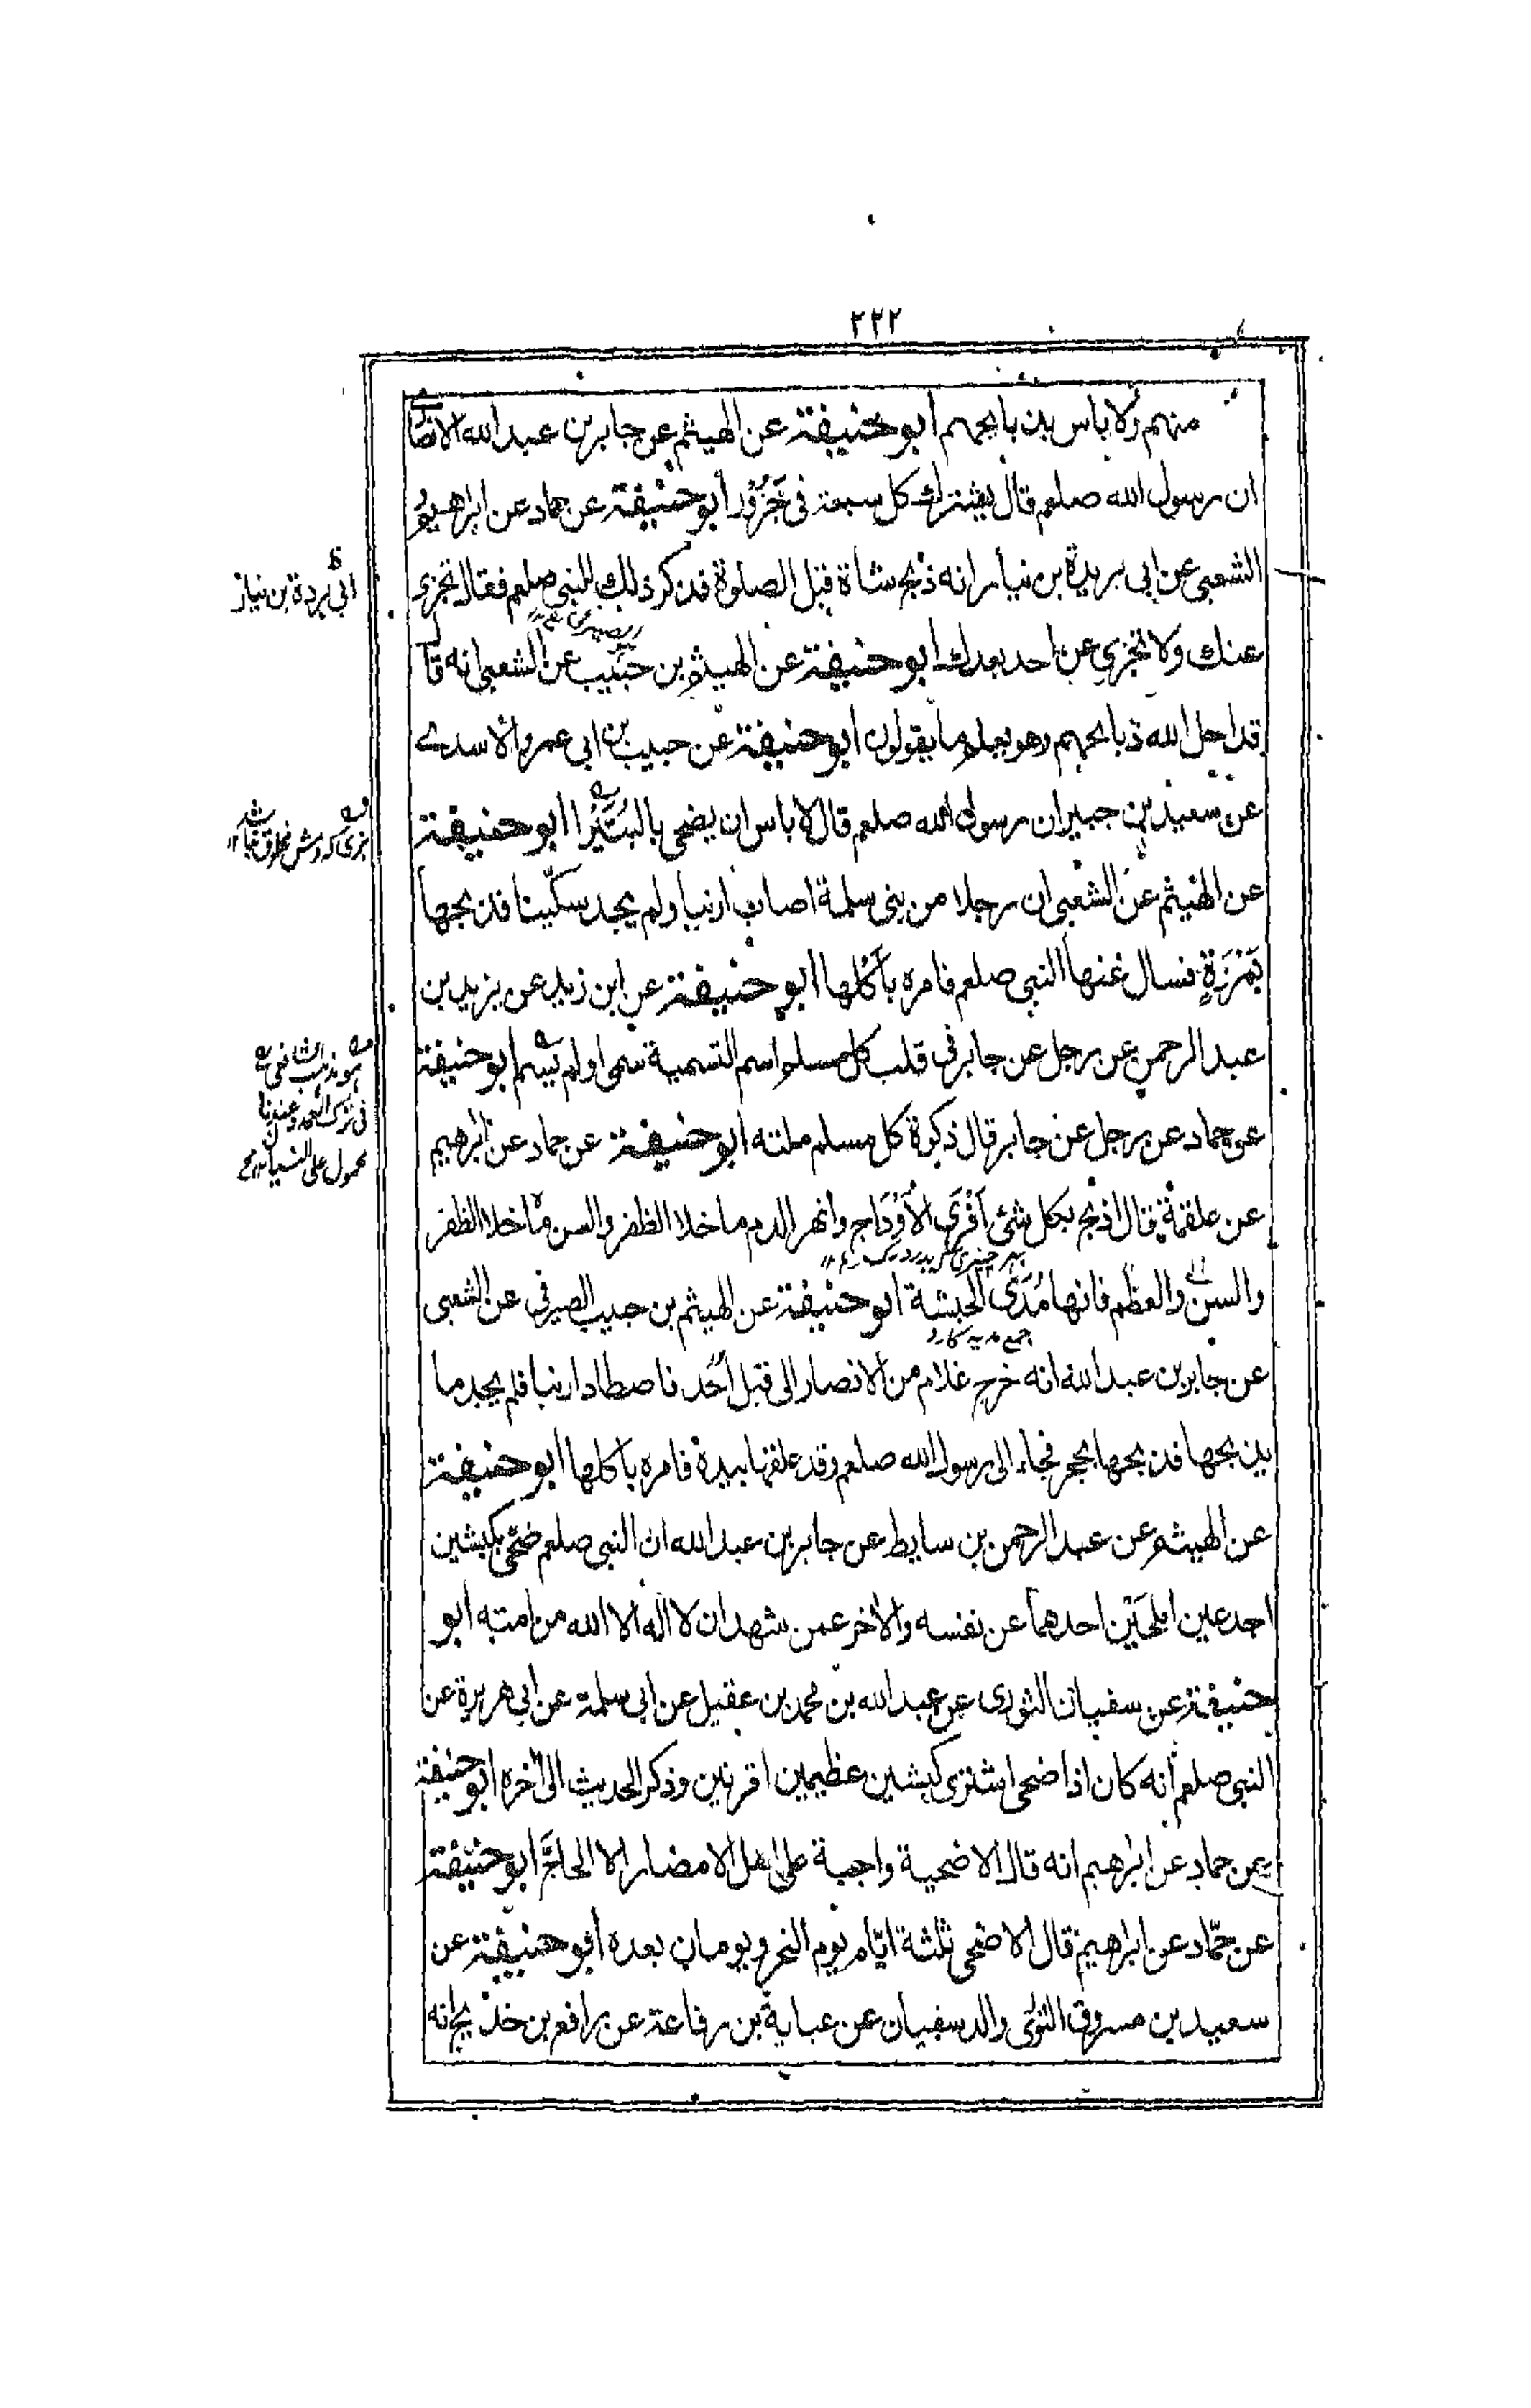 ٢٢٢
منهم ولا باس بذبايحهم ابو حنيفة عن الهيثم عن جابر بن عبد الله الانصاری
ان رسول الله صلعم قال يشترك كل سبعة في جَزُوْر ابو حنيفة عن حماد عن ابراهيم
الشعبي عن ابي بريدة بن نيار انه ذبح شاة قبل الصلوة فذكر ذلك للنبي صلعم فقال تجزى
ابي بردة بن نياز
عنك ولا تجزي عن احد بعدك ابو حنيفة عن الهيثم بن حبيب عن الشعبي انه قال
قد احل الله ذبايحهم وهو يعلم ما يقولون ابو حنيفة عن حبيب بن ابي عمرو الاسدے
عن سعيد بن جبير ان رسول الله صلعم قال لا باس ان يضحى بالبُتَيْرا ابو حنيفة
عن الهيثم عن الشعبي ان رجلا من بني سلمة اصاب ارنبا ولم يجد سكّينا فذبحها
بمَرْوَةٍ فسال عنها النبي صلعم فامره باكْلها ابو حنيفة عن ابن زيد عن يزيد بن
عبد الرحمن عن رجل عن جابر في قلب كل مسلم اسم التسمية سمى او لم يسم ابو حنيفة
هو مذهب الشافعي
في ترك العمد وعندنا
محمول على النسيان
عن حماد عن رجل عن جابر قال ذكرة كل مسلم ملته ابو حنيفة عن حماد عن ابرهيم
عن علقمة قال اذبح بكل شئ اَفْرَى الاَوْدَاج وانهر الدم ما خلا الظفر والسن ما خلا الظفر
والسن والعظم فانها مُدَى الحبشة ابو حنيفة عن الهيثم بن حبيب الصيرفي عن الشعبي
جمع مديه كارد
عن جابر بن عبد الله انه خرج غلام من الانصار الى قبل اُحُد فاصطاد ارنبا فلم يجد ما
يذبحها فذبحها بحجر فجاء الى رسول الله صلعم وقد علقها بيده فامره باكلها ابو حنيفة
عن الهيثم عن عبد الرحمن بن سابط عن جابر بن عبد الله ان النبي صلعم ضحّى بكبشين
اجدعين املحَيْن احدهما عن نفسه والاخر عمن شهد ان لا اله الا الله من امته ابو
حنيفة عن سفيان الثورى عن عبد الله بن محمد بن عقيل عن ابي سلمة عن ابي هريرة عن
النبي صلعم انه كان اذا ضحى اشترى كبشين عظيمين اقرنين وذكر الحديث الى اخره ابو حنيفة
عن حماد عن ابرهيم انه قال الاضحية واجبة على اهل الامصار الا الحاجّ ابو حنيفة
عن حمّاد عن ابراهيم قال الاضحى ثلثة ايّام يوم النحر ويومان بعده ابو حنيفة عن
سعيد بن مسروق الثورى والد سفيان عن عباية بن رفاعة عن رافع بن خديج انه